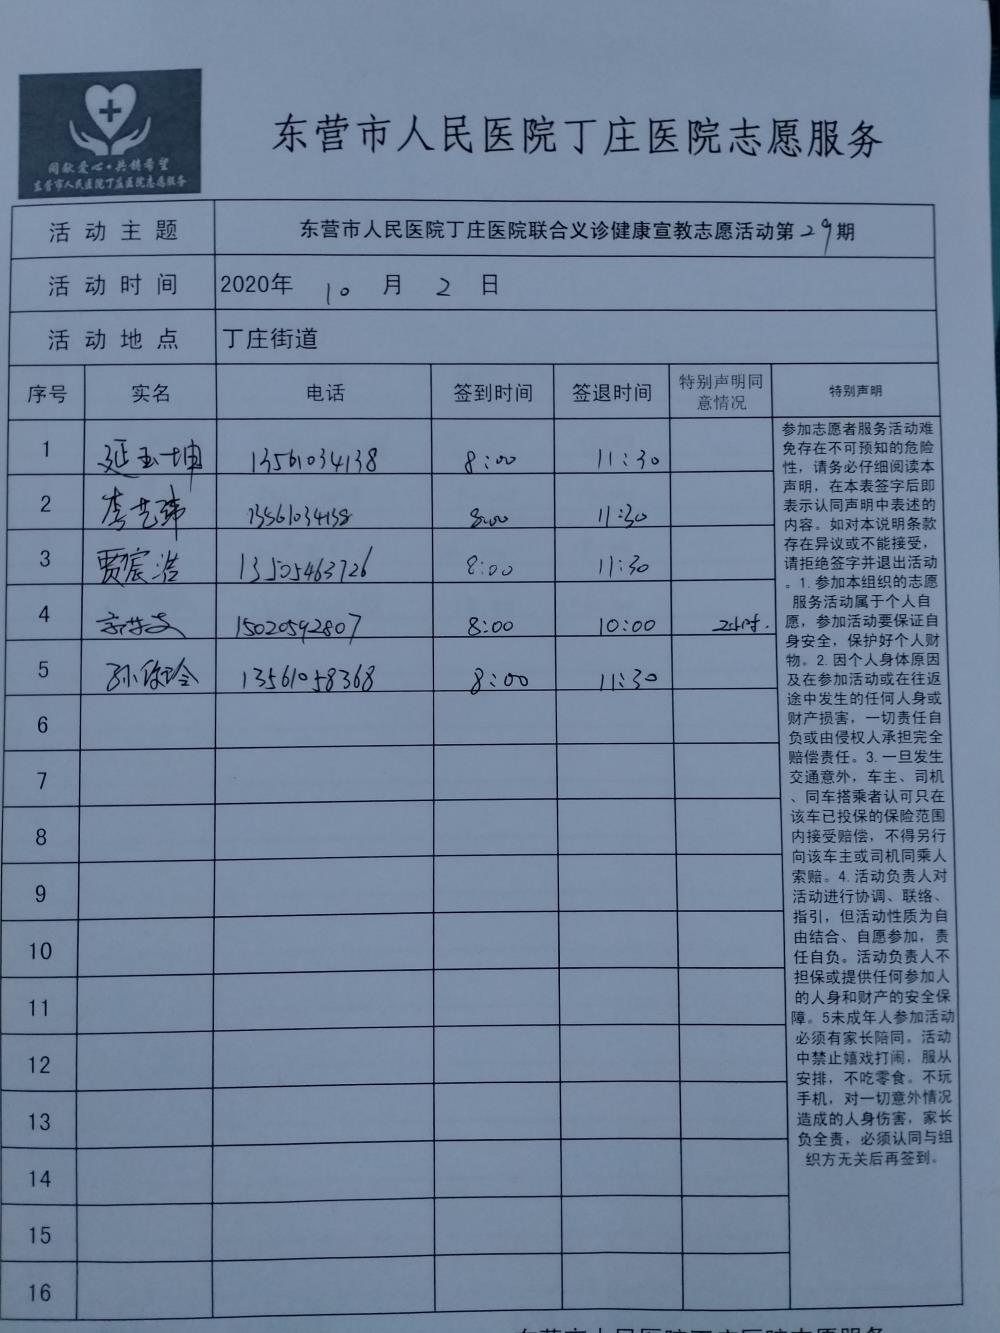 同献爱心·共铸希望
东营市人民医院丁庄医院志愿服务
东营市人民医院丁庄医院志愿服务
活动主题 东营市人民医院丁庄医院联合义诊健康宣教志愿活动第29期
活动时间 2020年 10 月 2 日
活动地点 丁庄街道
序号 实名 电话 签到时间 签退时间 特别声明同意情况 特别声明
1 延玉坤 13561034138 8:00 11:30
2 李艺玮 13561034138 8:00 11:30
3 贾宸浩 13505463726 8:00 11:30
4 15020592807 8:00 10:00 2小时.
5 孙俊玲 13561058368 8:00 11:30
6
7
8
9
10
11
12
13
14
15
16
参加志愿者服务活动难
免存在不可预知的危险
性，请务必仔细阅读本
声明，在本表签字后即
表示认同声明中表述的
内容。如对本说明条款
存在异议或不能接受，
请拒绝签字并退出活动
。1.参加本组织的志愿
服务活动属于个人自
愿，参加活动要保证自
身安全，保护好个人财
物。2.因个人身体原因
及在参加活动或在往返
途中发生的任何人身或
财产损害，一切责任自
负或由侵权人承担完全
赔偿责任。3.一旦发生
交通意外，车主、司机
、同车搭乘者认可只在
该车已投保的保险范围
内接受赔偿，不得另行
向该车主或司机同乘人
索赔。4.活动负责人对
活动进行协调、联络、
指引，但活动性质为自
由结合、自愿参加，责
任自负。活动负责人不
担保或提供任何参加人
的人身和财产的安全保
障。5未成年人参加活动
必须有家长陪同。活动
中禁止嬉戏打闹，服从
安排，不吃零食。不玩
手机，对一切意外情况
造成的人身伤害，家长
负全责，必须认同与组
织方无关后再签到。
东营市人民医院丁庄医院志愿服务